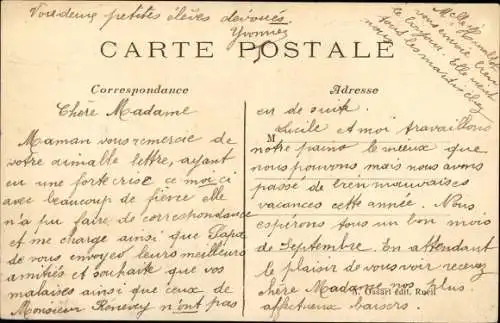 Vos deux petites élèves dévouées.
Yvonne
CARTE POSTALE
Correspondance
Chère Madame
Maman vous remercie de
votre aimable lettre, ayant
eu une forte crise ce moi ci
avec beaucoup de fièvre elle
n'a pu faire de correspondance
et me charge ainsi que Papa
de vous envoyer leurs meilleurs
amitiés et souhaite que vos
malaises ainsi que ceux de
Monsieur n'ont pas
Adresse
eu de suite.
M
Lucile et moi travaillons
notre piano le mieux que
nous pouvons mais nous avons
passé de bien mauvaises
vacances cette année. Nous
espérons tous un bon mois
de Septembre. En attendant
le plaisir de vous voir recevez
chère Madame nos plus
affectueux baisers.
édit. Rueil
Melle
vous envoie
Elle vient
tous les mardis chez
nous